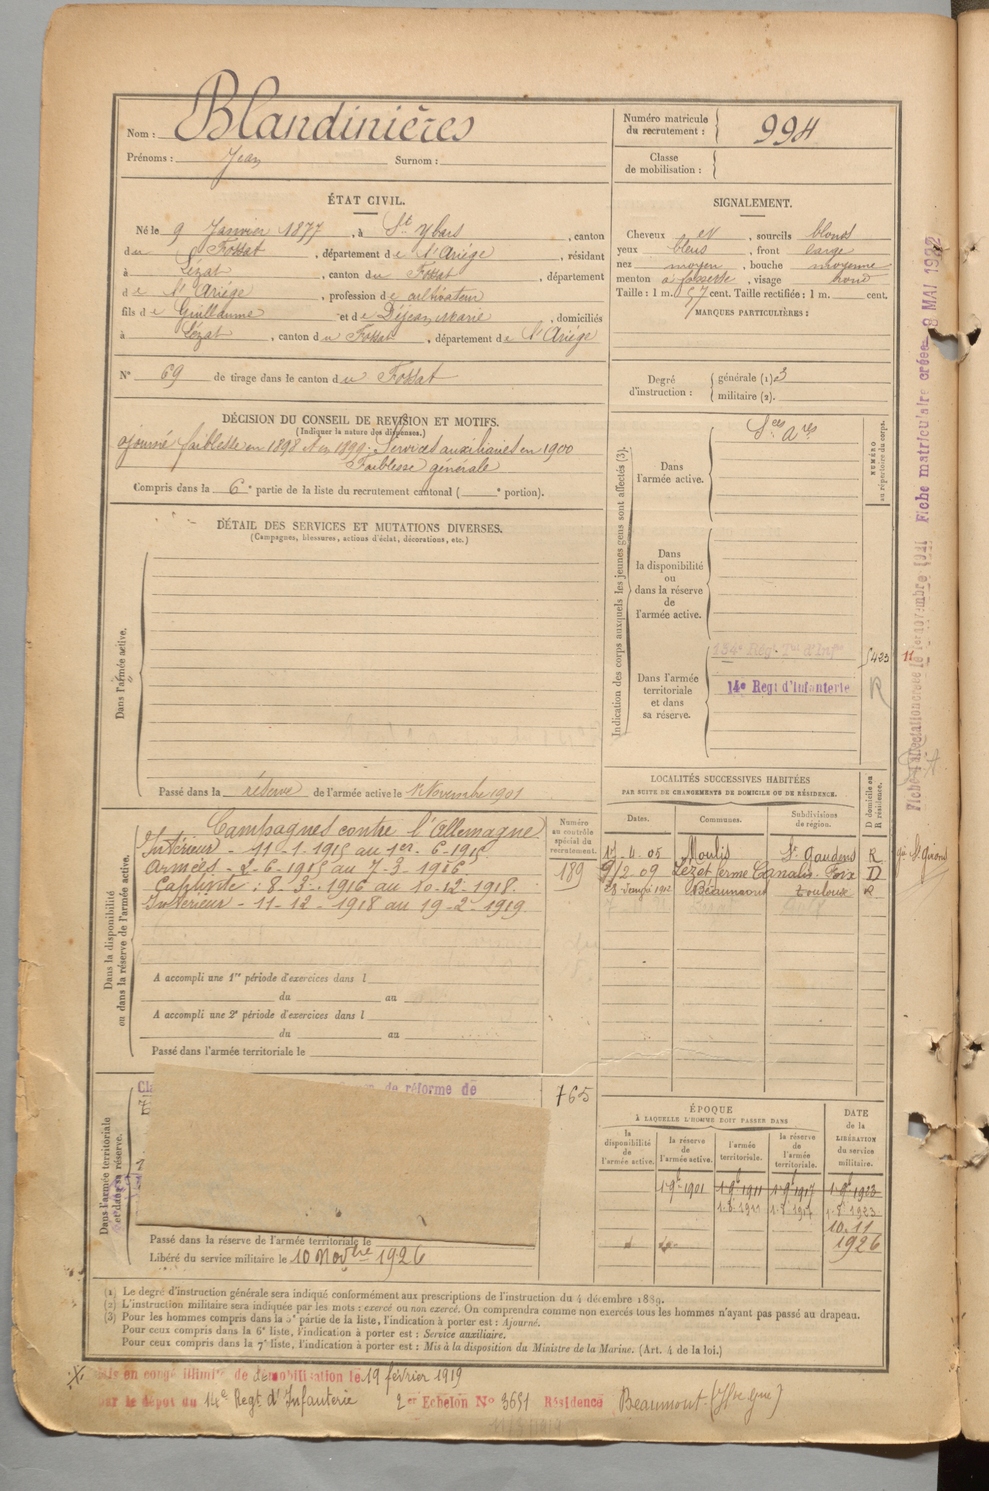 Nom : Blandinières
Prénoms : Jean Surnom :
Numéro matricule du recrutement : 994
Classe de mobilisation :
ÉTAT CIVIL.
Né le 9 Janvier 1877, à St Ybars, canton
du Fossat, département de l'Ariége, résidant
à Lézat, canton du Fossat, département
de l'Ariége, profession de cultivateur
fils de Guillaume et de Dejean Marie, domiciliés
à Lézat, canton du Fossat, département de l'Ariége
N° 69 de tirage dans le canton du Fossat
SIGNALEMENT.
Cheveux et, sourcils blond
yeux bleus, front large
nez moyen, bouche moyenne
menton à fossette, visage rond
Taille : 1 m. 57 cent. Taille rectifiée : 1 m. cent.
MARQUES PARTICULIÈRES :
Degré d'instruction : générale (1) 3
militaire (2).
DÉCISION DU CONSEIL DE REVISION ET MOTIFS.
(Indiquer la nature des dispenses.)
ajourné faiblesse en 1898 et en 1899. Services auxiliaires en 1900
Faiblesse générale
Compris dans la 6e partie de la liste du recrutement cantonal ( e portion).
DÉTAIL DES SERVICES ET MUTATIONS DIVERSES.
(Campagnes, blessures, actions d'éclat, décorations, etc.)
Dans l'armée active.
Passé dans la réserve de l'armée active le 1er Novembre 1901
Indication des corps auxquels les jeunes gens sont affectés (3).
NUMÉRO au répertoire du corps.
Dans l'armée active.
Sces Ares
Dans la disponibilité ou dans la réserve de l'armée active.
Dans l'armée territoriale et dans sa réserve.
134e Rég. Tal d'Infie
14e Regt d'Infanterie
R
LOCALITÉS SUCCESSIVES HABITÉES
PAR SUITE DE CHANGEMENTS DE DOMICILE OU DE RÉSIDENCE.
D domicile ou R résidence.
Dates. Communes. Subdivisions de région.
17-4-05 Moulis St Gaudens R
9/2 09 Lézat ferme Canalis Foix D
28 Janvr 1912 Beaumont Toulouse R
Dans la disponibilité ou dans la réserve de l'armée active.
Numéro au contrôle spécial du recrutement.
189
Campagnes contre l'Allemagne
Intérieur - 11-1-1915 au 1er-6-1915
Armées - 2-6-1915 au 7-3-1916
Captivité : 8-3-1916 au 10-12-1918.
Intérieur - 11-12-1918 au 19-2-1919
A accompli une 1re période d'exercices dans l
du au
A accompli une 2e période d'exercices dans l
du au
Passé dans l'armée territoriale le
Dans l'armée territoriale et dans sa réserve.
de réforme de
765
Passé dans la réserve de l'armée territoriale le
Libéré du service militaire le 10 Novbre 1926
ÉPOQUE
À LAQUELLE L'HOMME DOIT PASSER DANS
DATE de la LIBÉRATION du service militaire.
la disponibilité de l'armée active. la réserve de l'armée active. l'armée territoriale. la réserve de l'armée territoriale.
1 9bre 1901 1 9bre 1911 1 9bre 1917 1 9bre 1923
10.11
1926
(1) Le degré d'instruction générale sera indiqué conformément aux prescriptions de l'instruction du 4 décembre 1889.
(2) L'instruction militaire sera indiquée par les mots : exercé ou non exercé. On comprendra comme non exercés tous les hommes n'ayant pas passé au drapeau.
(3) Pour les hommes compris dans la 5e partie de la liste, l'indication à porter est : Ajourné.
Pour ceux compris dans la 6e liste, l'indication à porter est : Service auxiliaire.
Pour ceux compris dans la 7e liste, l'indication à porter est : Mis à la disposition du Ministre de la Marine. (Art. 4 de la loi.)
Mis en congé illimité de démobilisation le 19 février 1919
par le dépôt du 14e Regt d'Infanterie 2er Echelon N° 3651 Résidence Beaumont (Hte Gne)
Fiche matriculaire créée 8 MAI 1922